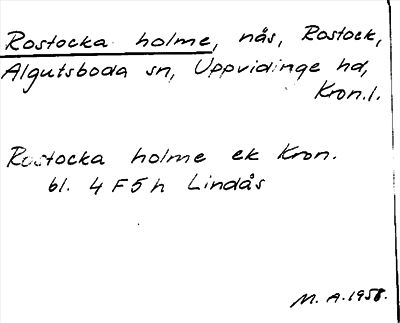 Rostocka holme, nås, Rostock,
Algutsboda sn, Uppvidinge hd,
Kron.l.
Rostocka holme ek Kron.
bl. 4 F 5 h Lindås
M. A. 1958.